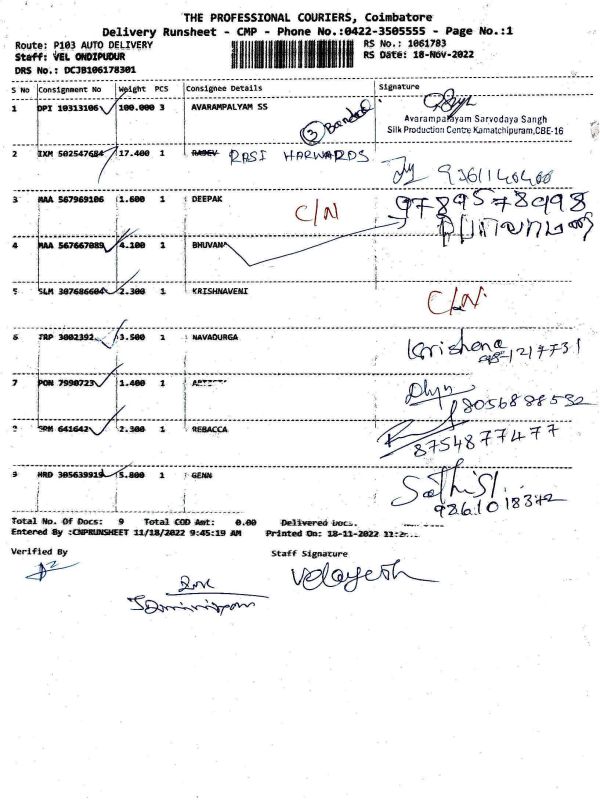 THE PROFESSIONAL COURIERS, Coimbatore
Delivery Runsheet - CMP - Phone No.:0422-3505555 - Page No.:1
Route: P103 AUTO DELIVERY RS No.: 1061783
Staff: VEL ONDIPUDUR RS Date: 18-Nov-2022
DRS No.: DCJB106178301
S No Consignment No Weight PCS Consignee Details Signature
1 DPI 10313106 100.000 3 AVARAMPALYAM SS
3
Avarampalayam Sarvodaya Sangh
Silk Production Centre Kamatchipuram,CBE-16
2 IXM 502547684 17.400 1 RASI HARWARDS
3 MAA 567969106 1.600 1 DEEPAK C/N 9789578998
4 MAA 567667089 4.100 1 BHUVANA
5 SLM 307686604 2.300 1 KRISHNAVENI C/N
6 TRP 3002392 3.500 1 NAVADURGA Krishena
7 PON 7990723 1.400 1
8 SPM 641642 2.300 1 REBACCA 8754877477
9 HRD 305639919 5.800 1 GENN
Total No. Of Docs: 9 Total COD Amt: 0.00 Delivered Docs.
Entered By :CNPRUNSHEET 11/18/2022 9:45:19 AM Printed On: 18-11-2022
Verified By Staff Signature
Velayesh